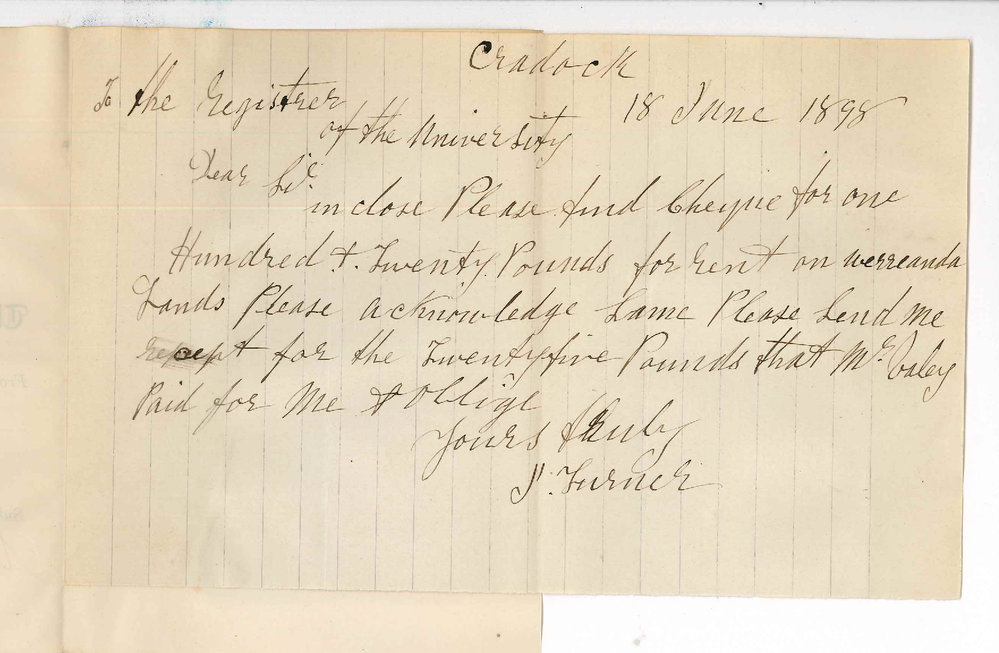 Cradock
18 June 1898
To the Registrer
of the University
Dear Sir
inclose Please find Cheque for one
Hundred & Twenty Pounds for rent on werreanda
Lands Please acknowledge Same Please Send me
recept for the Twentyfive Pounds that Mr
Paid for Me & Oblige
Yours truly
J. Turner